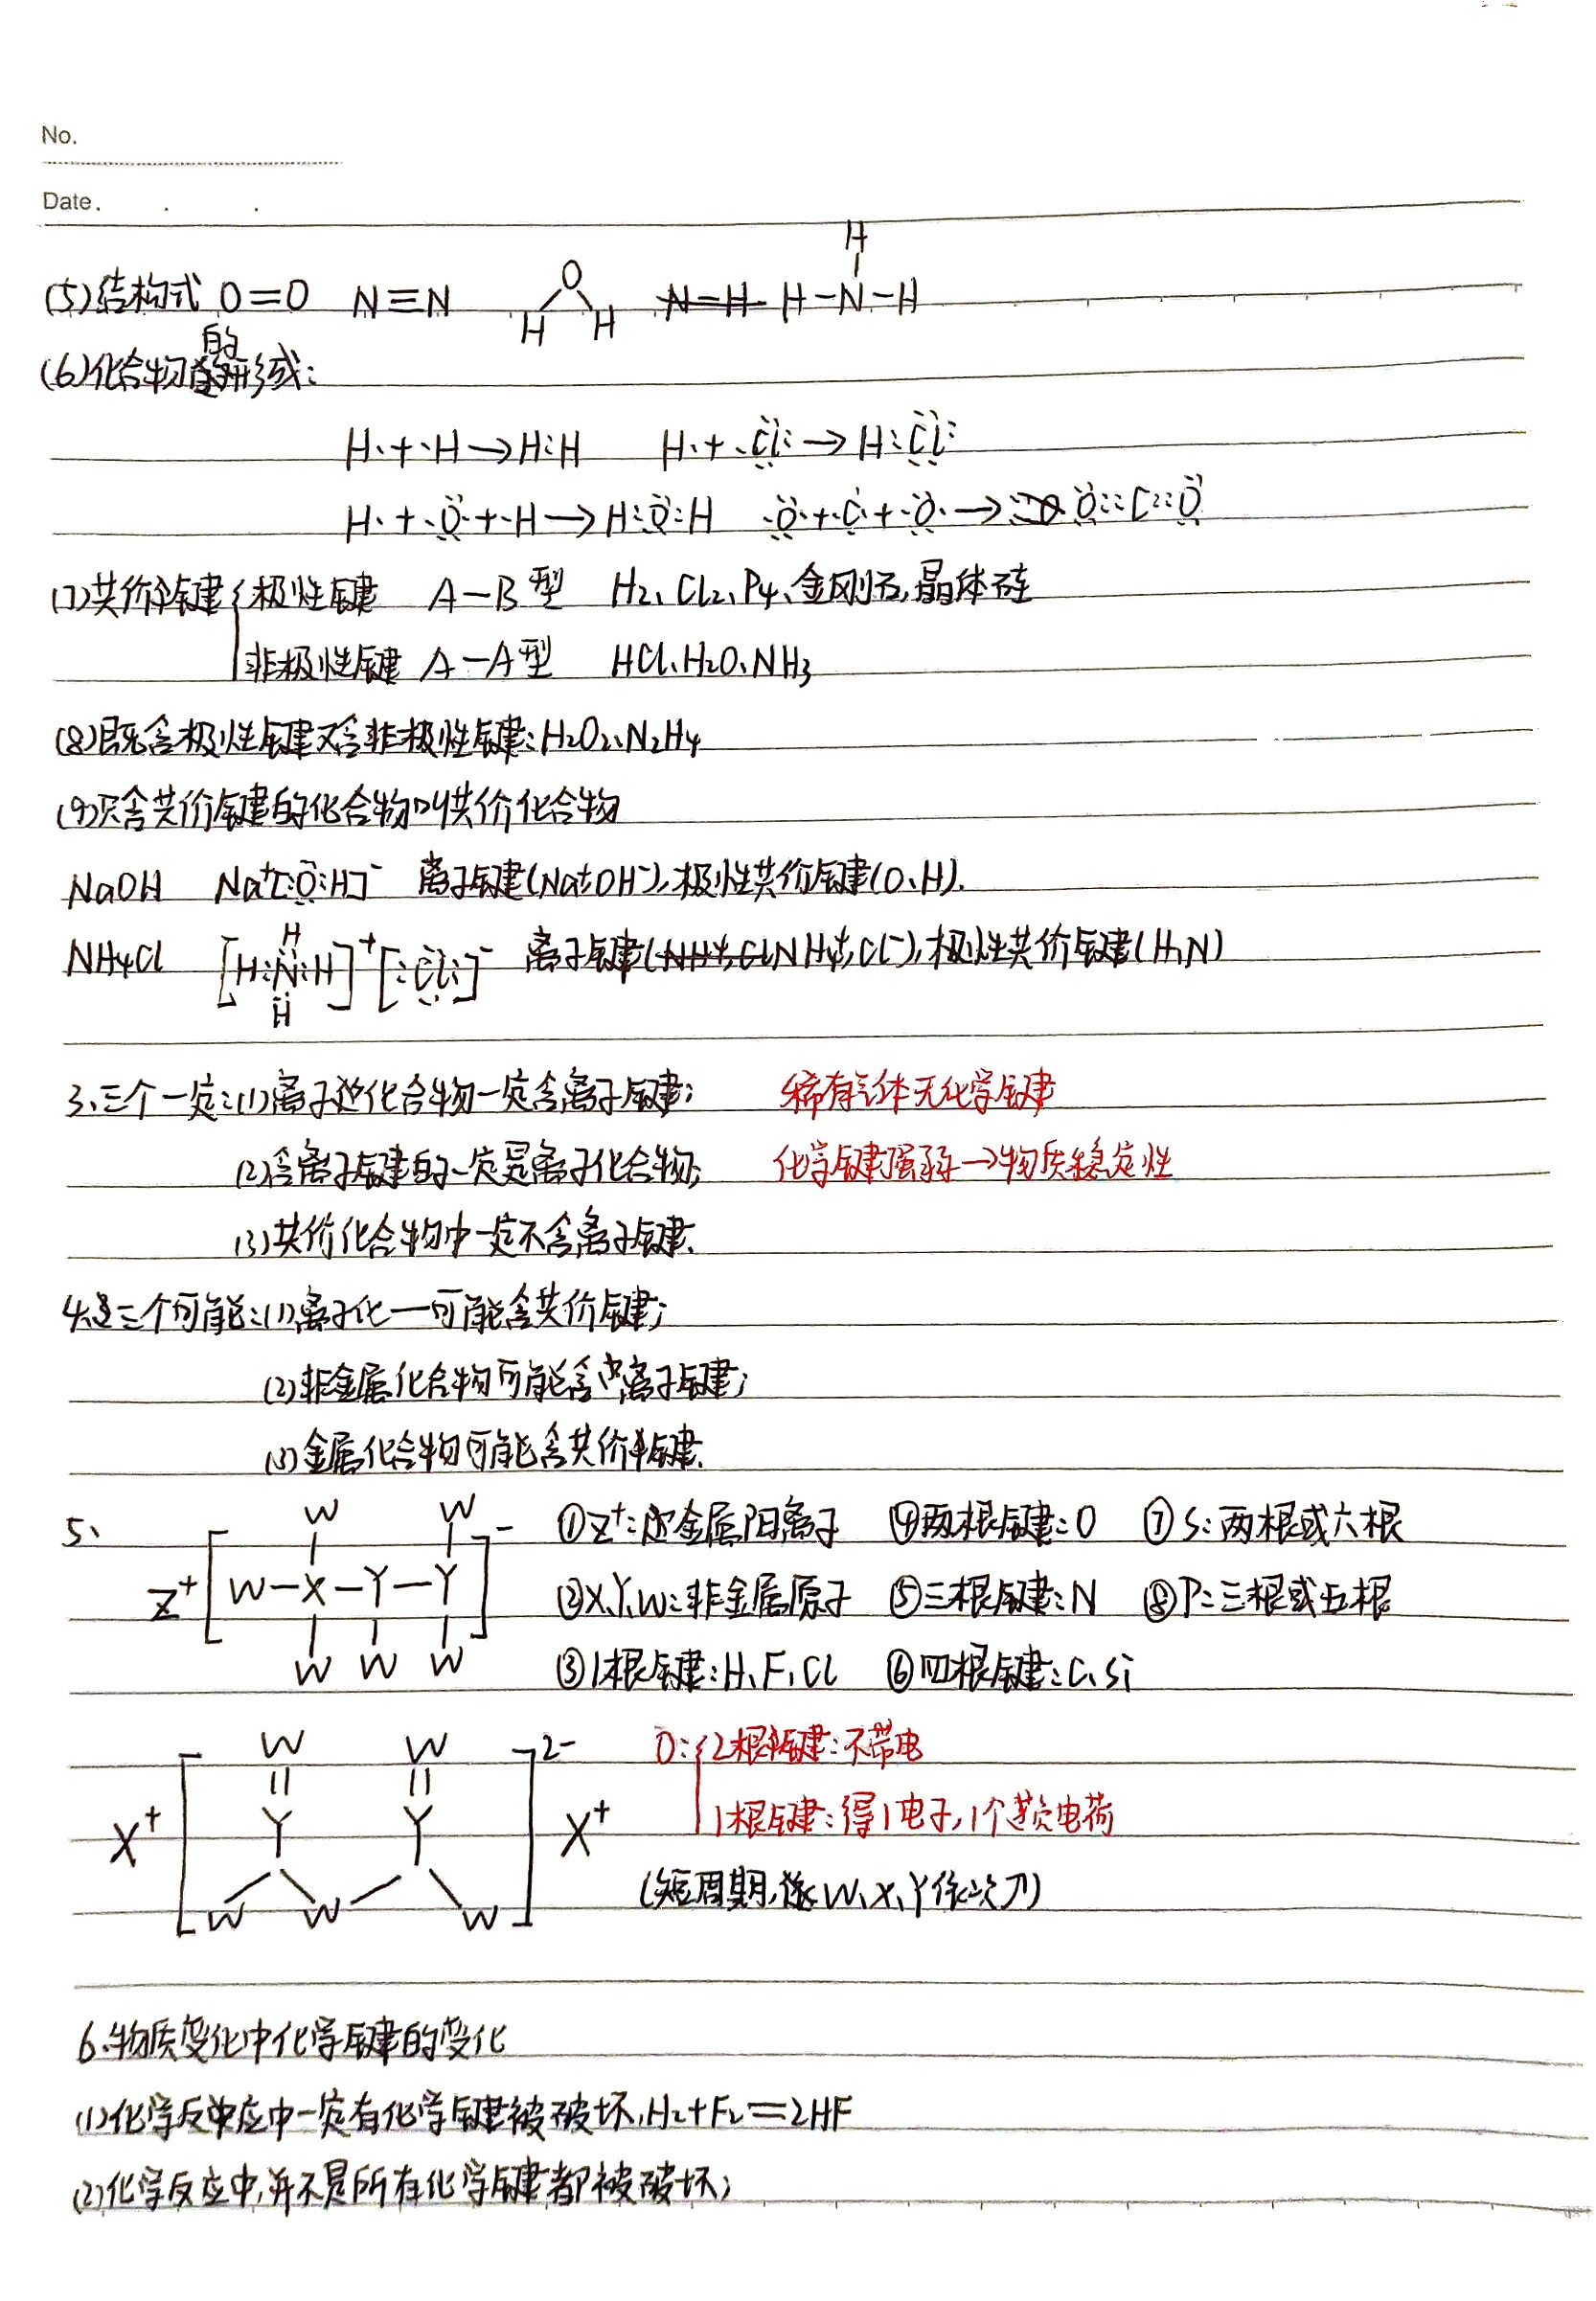 No.
Date.
H
(5)结构式 O=O N≡N O H H N-H H-N-H
的
(6)化合物形成:
H·+·H→H:H H·+·Cl:→H:Cl:
H·+·O·+·H→H:O:H ·O·+·C·+·O·→O::C::O
(7)共价键 极性键 A-B型 H₂、Cl₂、P₄、金刚石、晶体硅
非极性键 A-A型 HCl、H₂O、NH₃
(8)既含极性键又含非极性键:H₂O₂、N₂H₄
(9)只含共价键的化合物叫共价化合物
NaOH Na⁺[:O:H]⁻ 离子键(Na⁺、OH⁻),极性共价键(O、H).
NH₄Cl [H:N:H]⁺[:Cl:]⁻ 离子键(NH₄⁺,Cl NH₄⁺,Cl⁻),极性共价键(H,N)
H
H
3、三个一定:(1)离子化合物一定含离子键; 稀有气体无化学键
(2)含离子键的一定是离子化合物; 化学键强弱→物质稳定性
(3)共价化合物中一定不含离子键.
4、三个可能:(1)离子化一可能含共价键;
(2)非金属化合物可能含离子键;
(3)金属化合物可能含共价键.
5、 W W ①Z⁺:金属阳离子 ④两根键:O ⑦S:两根或六根
Z⁺[W-X-Y-Y]⁻ ②X、Y、W:非金属原子 ⑤三根键:N ⑧P:三根或五根
W W W ③1根键:H、F、Cl ⑥四根键:C、Si
W W 2- O: 2根键:不带电
X⁺ Y Y X⁺ 1根键:得1电子,1个负电荷
W W W (短周期,W、X、Y依次刀)
6.物质变化中化学键的变化
(1)化学反应中一定有化学键被破坏,H₂+F₂=2HF
(2)化学反应中,并不是所有化学键都被破坏;